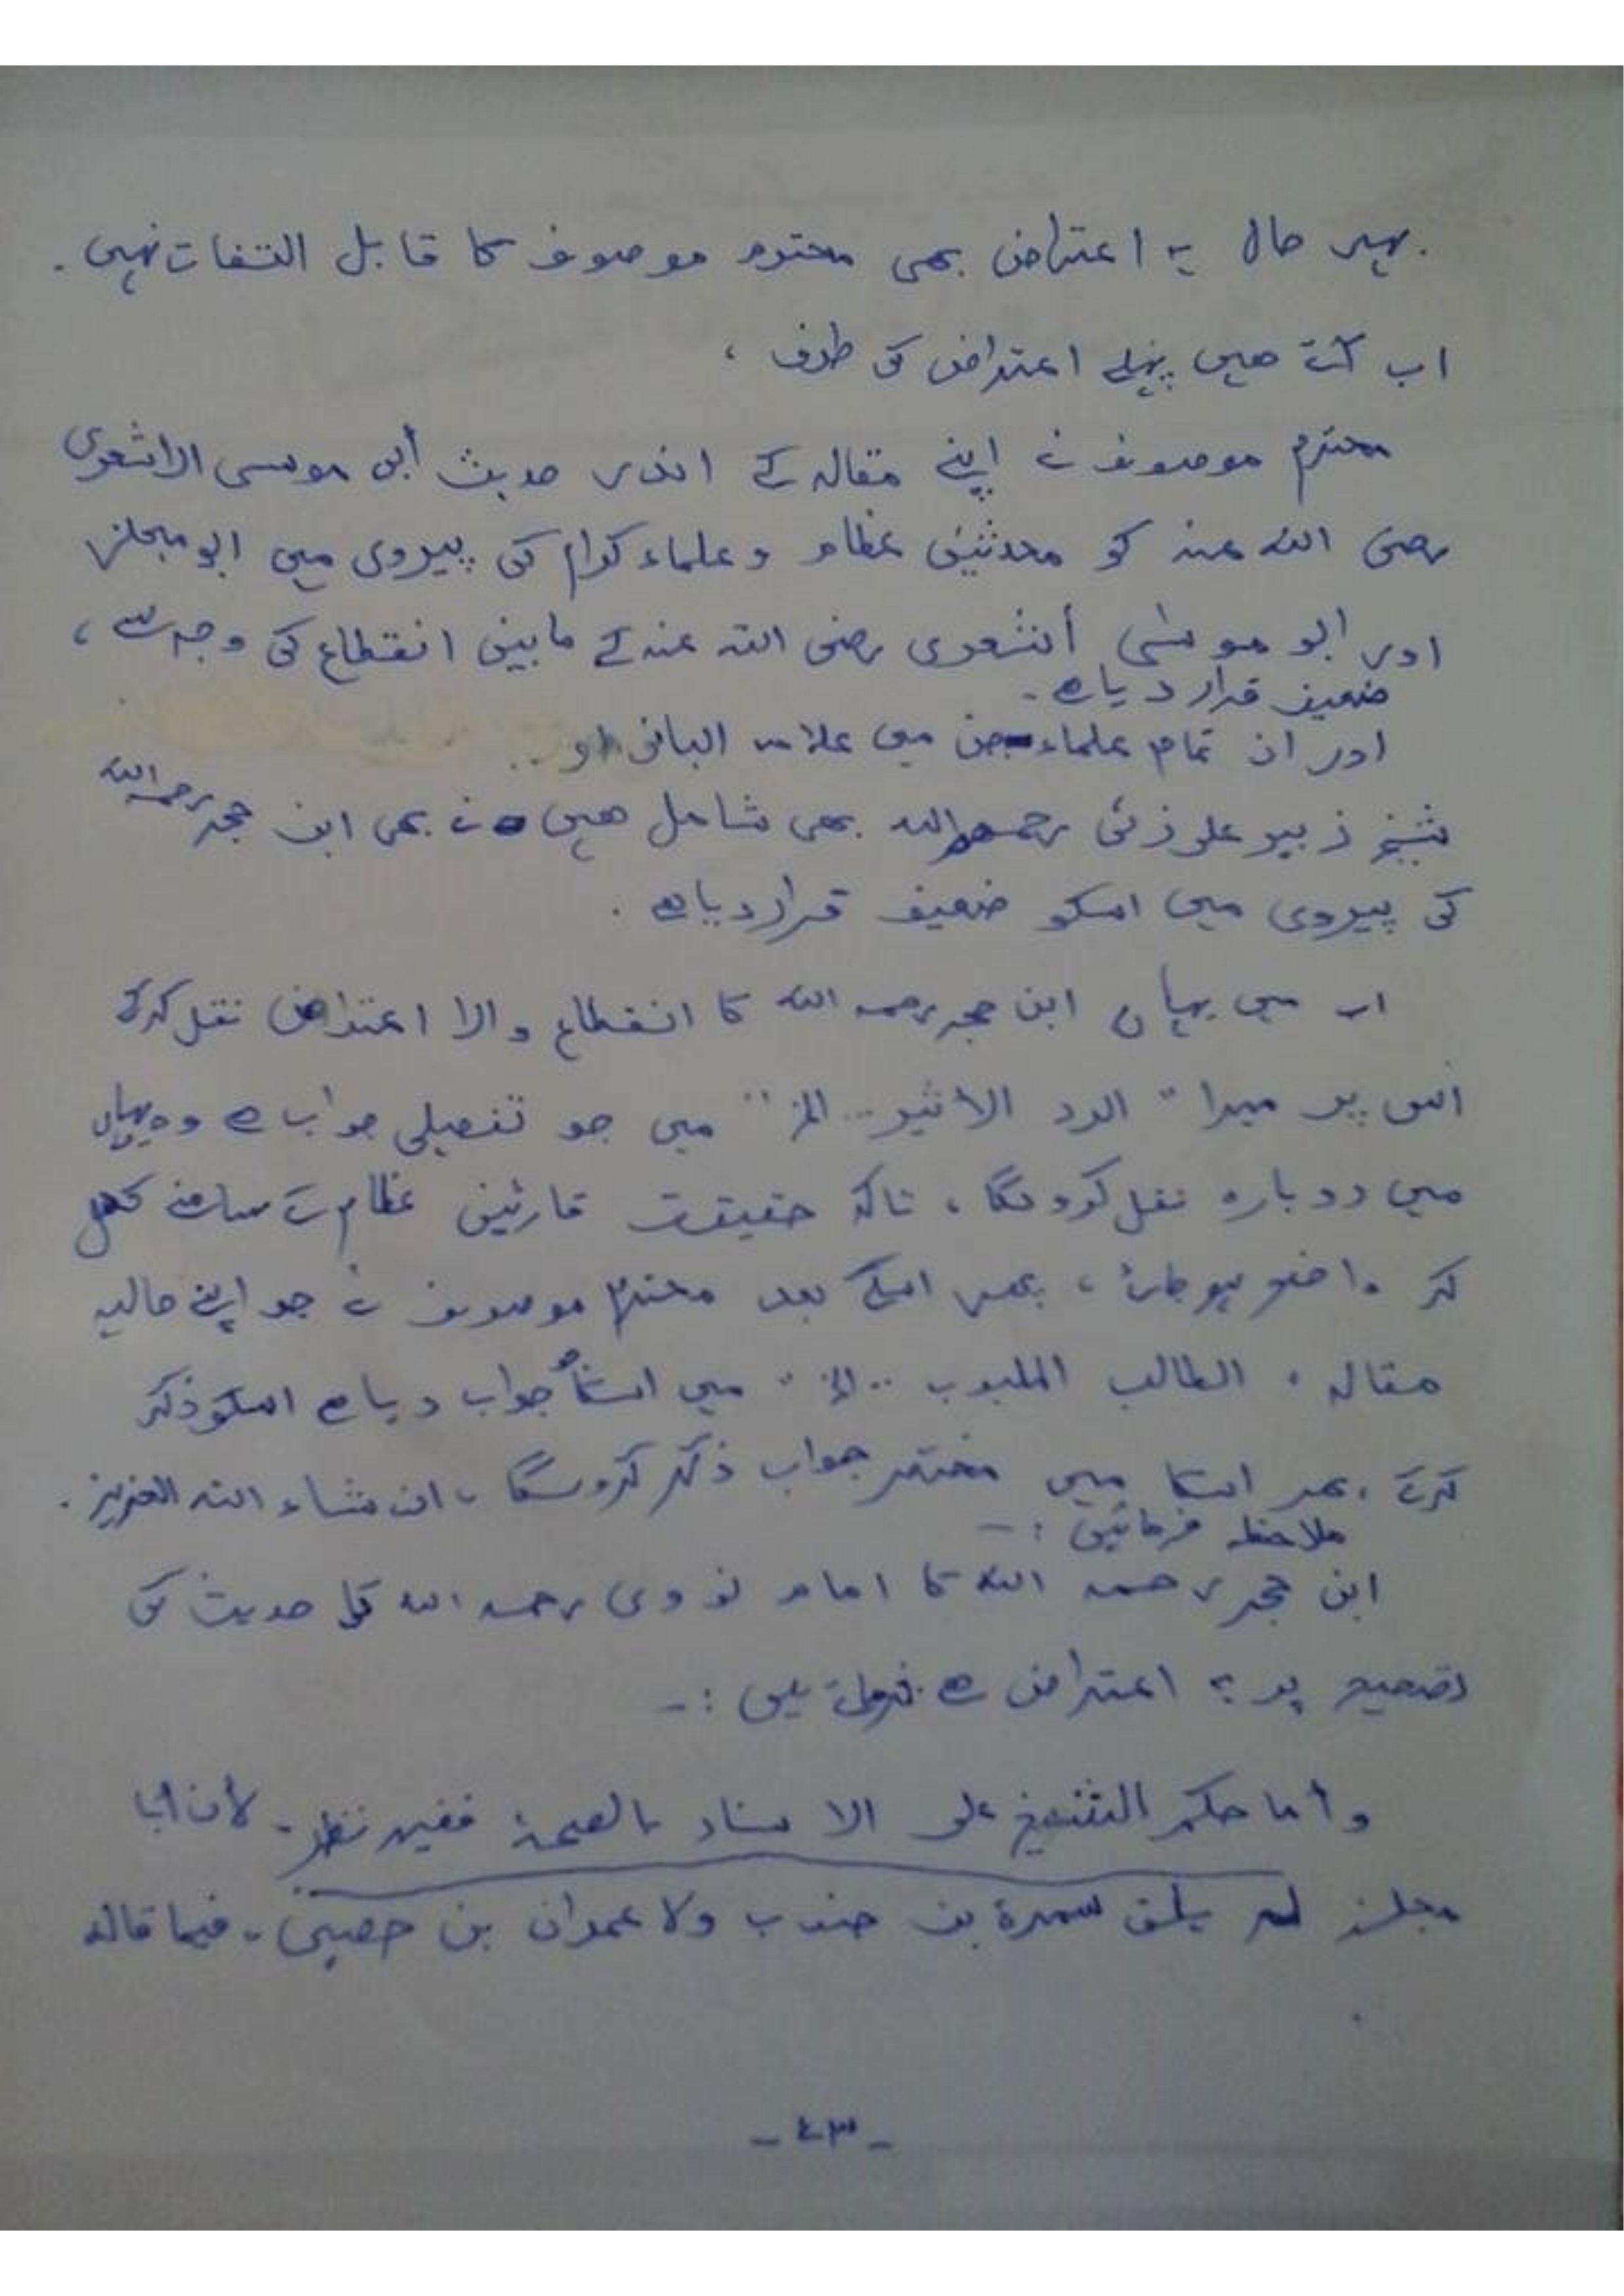 بہر حال یہ اعتراض بھی محترم موصوف کا قابل التفات نہیں .
اب آتے ھیں پہلے اعتراض کی طرف ،
محترم موصوف نے اپنے مقالہ کے اندر حدیث أبی موسی الاشعری
رضی اللہ عنہ کو محدثین عظام و علماء کرام کی پیروی میں ابو مجلز
اور ابو موسیٰ أشعری رضی اللہ عنہ کے مابین انقطاع کی وجہ سے ،
ضعیف قرار دیا ھے -
اور ان تمام علماء جن میں علامہ البانی او ..
شیخ زبیر علی زئی رحمھم اللہ بھی شامل ھیں نے بھی ابن حجر رحمہ اللہ
کی پیروی میں اسکو ضعیف قرار دیا ھے .
اب میں یہاں ابن حجر رحمہ اللہ کا انقطاع والا اعتراض نقل کرکے
اس پر میرا " الرد الأثیر... الخ " میں جو تفصیلی جواب ھے وہ یہاں
میں دوبارہ نقل کرونگا ، تاکہ حقیقت قارئین عظام کے سامنے کھل
کر واضح ہو جائے ، پھر اسکے بعد محترم موصوف نے جو اپنے حالیہ
مقالہ " الطالب ... الخ " میں اسکا جواب دیا ھے اسکو ذکر
کرکے ، پھر اسکا میں مختصر جواب ذکر کرونگا ، ان شاء اللہ العزیز .
ملاحظہ فرمائیں :-
ابن حجر رحمہ اللہ کا امام نووی رحمہ اللہ کی حدیث کی
تصحیح پر یہ اعتراض ھے فرماتے ہیں :-
وأما حكم الشيخ على الاسناد بالصحة ففيه نظر - لأن أبا
مجلز لم يلق سمرة بن جندب ولا عمران بن حصين - فيما قاله
- ٤٣ -